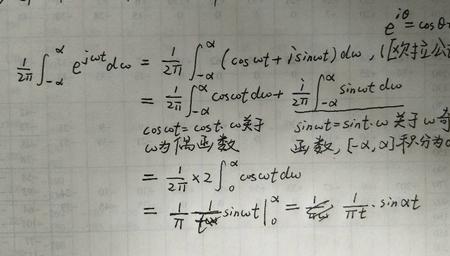 e^{iθ} = cosθ
\frac{1}{2π}∫_{-α}^{α} e^{jωt}dω = \frac{1}{2π}∫_{-α}^{α}(cosωt + isinωt)dω, (欧拉公
= \frac{1}{2π}∫_{-α}^{α} cosωtdω + \frac{i}{2π}∫_{-α}^{α} sinωtdω
cosωt = cost·ω关于 sinωt = sint·ω关于ω奇
ω为偶函数 函数, [-α, α]积分为
= \frac{1}{2π}×2∫_{0}^{α} cosωtdω
= \frac{1}{π} \frac{1}{t} sinωt|_{0}^{α} = \frac{1}{πt}·sinαt